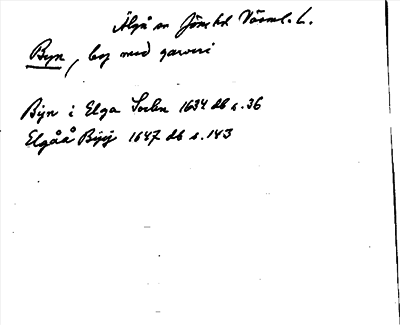 Älgå sn Jösse hd Värml. L.
Byn, by med garveri
Byn i Elga Sochn 1634 db s. 36
Elgåå Byy 1647 db s. 143